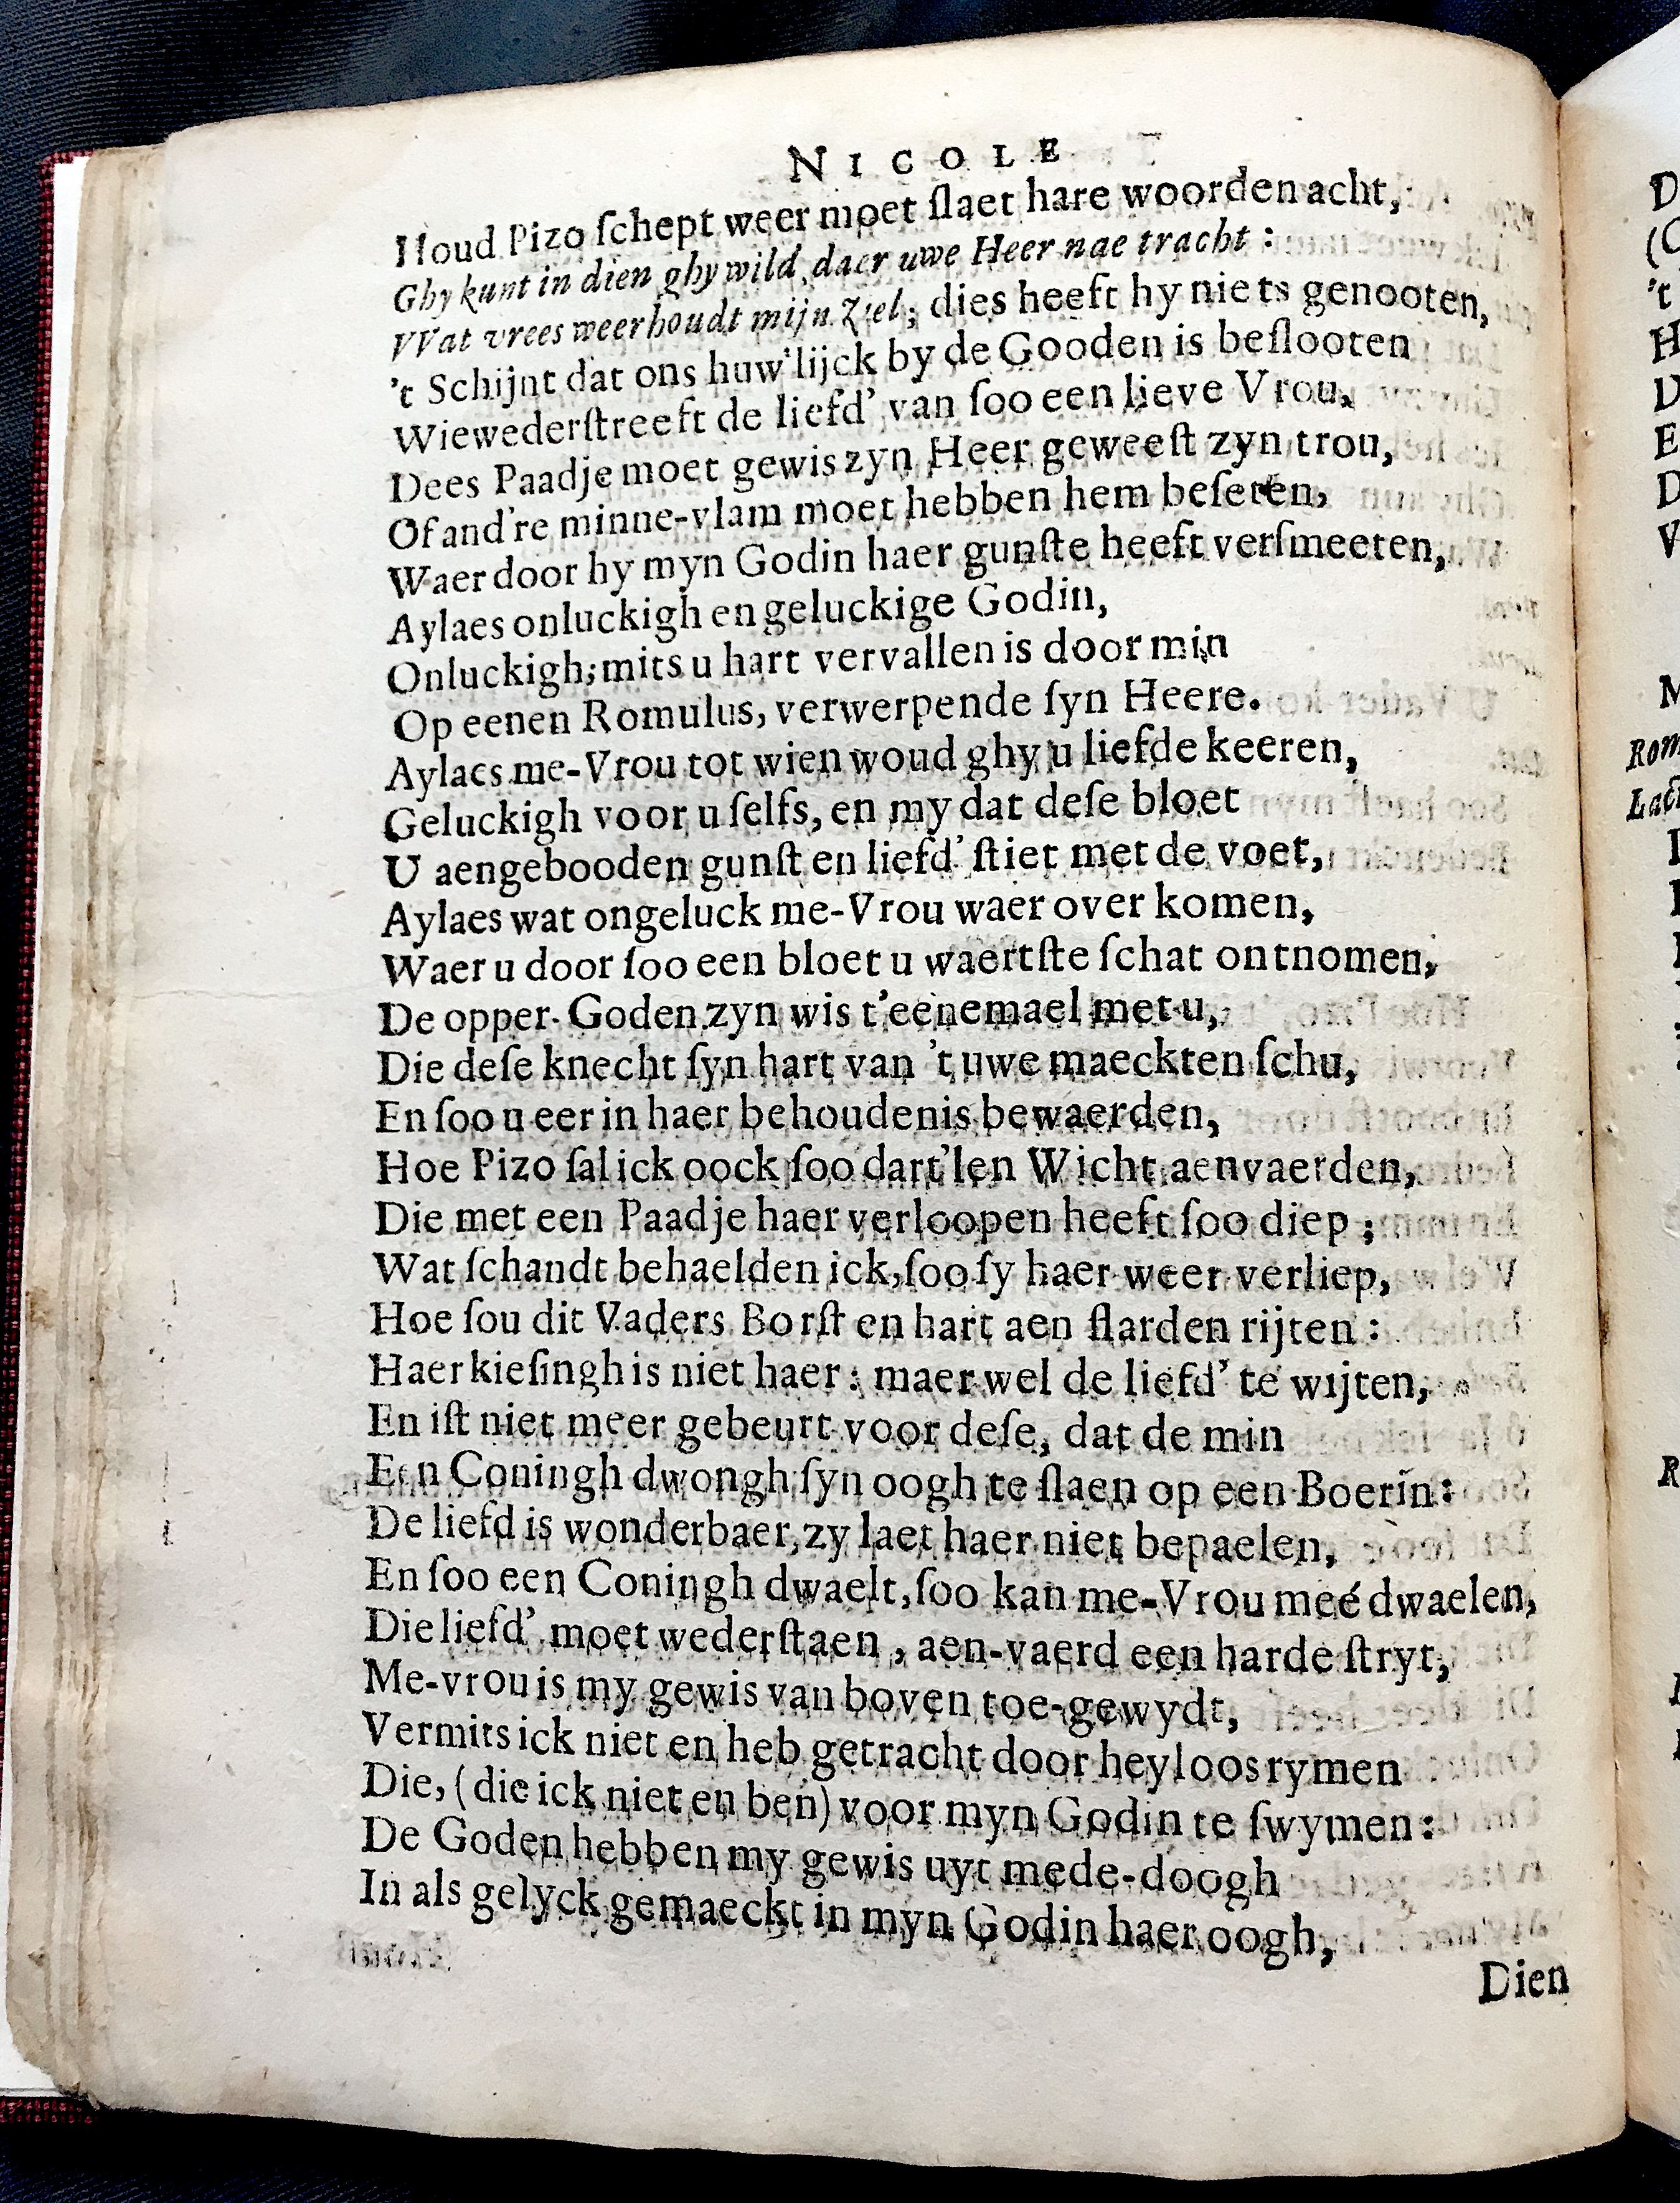 NICOLE
Houd Pizo ſchept weer moet ſlaet hare woorden acht,
Ghy kunt in dien ghy wild, daer uwe Heer nae tracht :
VVat vrees weerhoudt mijn Ziel; dies heeft hy niets genooten,
't Schijnt dat ons huw'lijck by de Gooden is beſlooten
Wie wederſtreeft de liefd' van ſoo een lieve Vrou,
Dees Paadje moet gewis zyn Heer geweeſt zyn trou,
Of and're minne-vlam moet hebben hem beſeten,
Waer door hy myn Godin haer gunſte heeft verſmeeten,
Aylaes onluckigh en geluckige Godin,
Onluckigh; mits u hart vervallen is door min
Op eenen Romulus, verwerpende ſyn Heere.
Aylaes me-Vrou tot wien woud ghy u liefde keeren,
Geluckigh voor u ſelfs, en my dat deſe bloet
U aengebooden gunſt en liefd' ſtiet met de voet,
Aylaes wat ongeluck me-Vrou waer over komen,
Waer u door ſoo een bloet u waertſte ſchat ontnomen,
De opper-Goden zyn wis t'eenemael met u,
Die deſe knecht ſyn hart van 't uwe maeckten ſchu,
En ſoo u eer in haer behoudenis bewaerden,
Hoe Pizo ſal ick oock ſoo dart'len Wicht aenvaerden,
Die met een Paadje haer verloopen heeft ſoo diep ;
Wat ſchandt behaelden ick, ſoo ſy haer weer verliep,
Hoe ſou dit Vaders Borſt en hart aen ſlarden rijten :
Haer kieſingh is niet haer : maer wel de liefd' te wijten,
En iſt niet meer gebeurt voor deſe, dat de min
Een Coningh dwongh ſyn oogh te ſlaen op een Boerin:
De liefd is wonderbaer, zy laet haer niet bepaelen,
En ſoo een Coningh dwaelt, ſoo kan me-Vrou meé dwaelen,
Die liefd' moet wederſtaen, aen-vaerd een harde ſtryt,
Me-vrou is my gewis van boven toe-gewydt,
Vermits ick niet en heb getracht door heyloos rymen
Die, (die ick niet en ben) voor myn Godin te ſwymen:
De Goden hebben my gewis uyt mede-doogh
In als gelyck gemaeckt in myn Godin haer oogh,
Dien